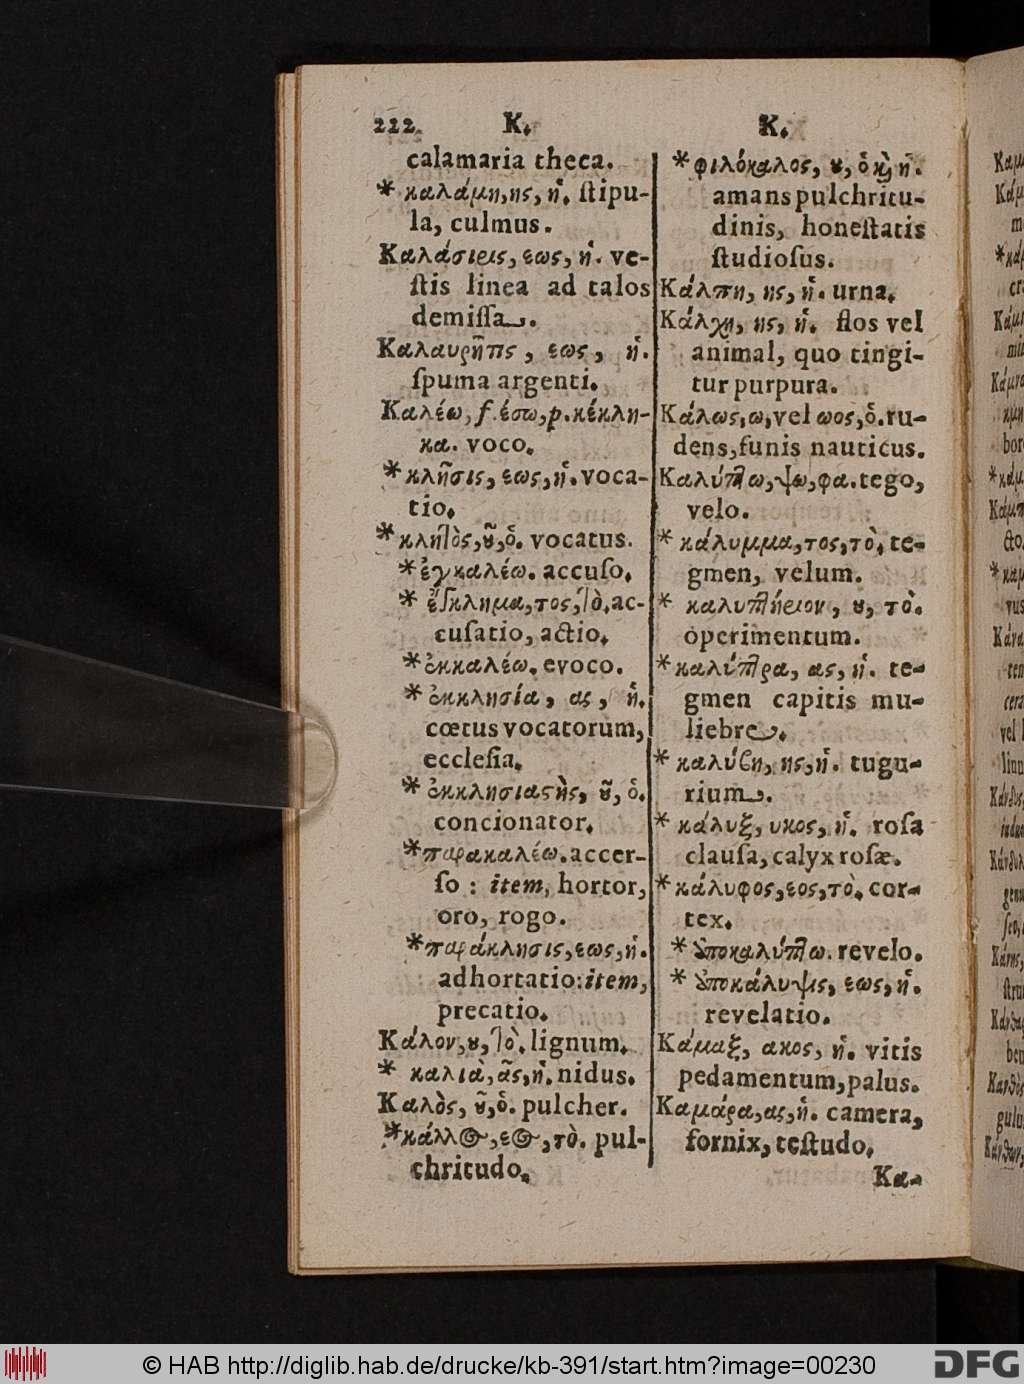 222. K.
calamaria theca.
* καλάμη, ης, ἡ. ſtipu-
la, culmus.
Καλάσιεις, εως, ἡ. ve-
ſtis linea ad talos
demiſſa.
Καλαυρῆπς, εως, ἡ.
ſpuma argenti.
Καλέω, f. έσω, p. κέκλη-
κα. voco.
* κλῆσις, εως, ἡ. voca-
tio.
* κλητὸς, ȣ͂, ὁ. vocatus.
* ἐγκαλέω. accuſo.
* ἔγκλημα, τος, τὸ. ac-
cuſatio, actio.
* ἐκκαλέω. evoco.
* ἐκκλησία, ας, ἡ.
cœtus vocatorum,
eccleſia.
* ἐκκλησιαςὴς, ȣ͂, ὁ.
concionator.
* παρακαλέω. accer-
ſo : item, hortor,
oro, rogo.
* παράκλησις, εως, ἡ.
adhortatio: item,
precatio.
Κάλον, ȣ, τὸ. lignum.
* καλιὰ, ᾶς, ἡ. nidus.
Καλὸς, ȣ͂, ὁ. pulcher.
* κάλλος, εος, τὸ. pul-
chritudo.
K.
* φιλόκαλος, ȣ, ὁ κ̀ ἡ.
amans pulchritu-
dinis, honeſtatis
ſtudioſus.
Κάλπη, ης, ἡ. urna.
Κάλχη, ης, ἡ. flos vel
animal, quo tingi-
tur purpura.
Κάλως, ω, vel ωος, ὁ. ru-
dens, funis nauticus.
Καλύπτω, ψω, φα. tego,
velo.
* κάλυμμα, τος, τὸ. te-
gmen, velum.
* καλυπτήειον, ȣ, τὸ.
operimentum.
* καλύπτρα, ας, ἡ. te-
gmen capitis mu-
liebre.
* καλύβη, ης, ἡ. tugu-
rium.
* κάλυξ, υκος, ἡ. roſa
clauſa, calyx roſæ.
* κάλυφος, εος, τὸ. cor-
tex.
* ἀποκαλύπτω. revelo.
* ἀποκάλυψις, εως, ἡ.
revelatio.
Κάμαξ, ακος, ἡ. vitis
pedamentum, palus.
Καμάρα, ας, ἡ. camera,
fornix, teſtudo.
Κα-
© HAB http://diglib.hab.de/drucke/kb-391/start.htm?image=00230
DFG